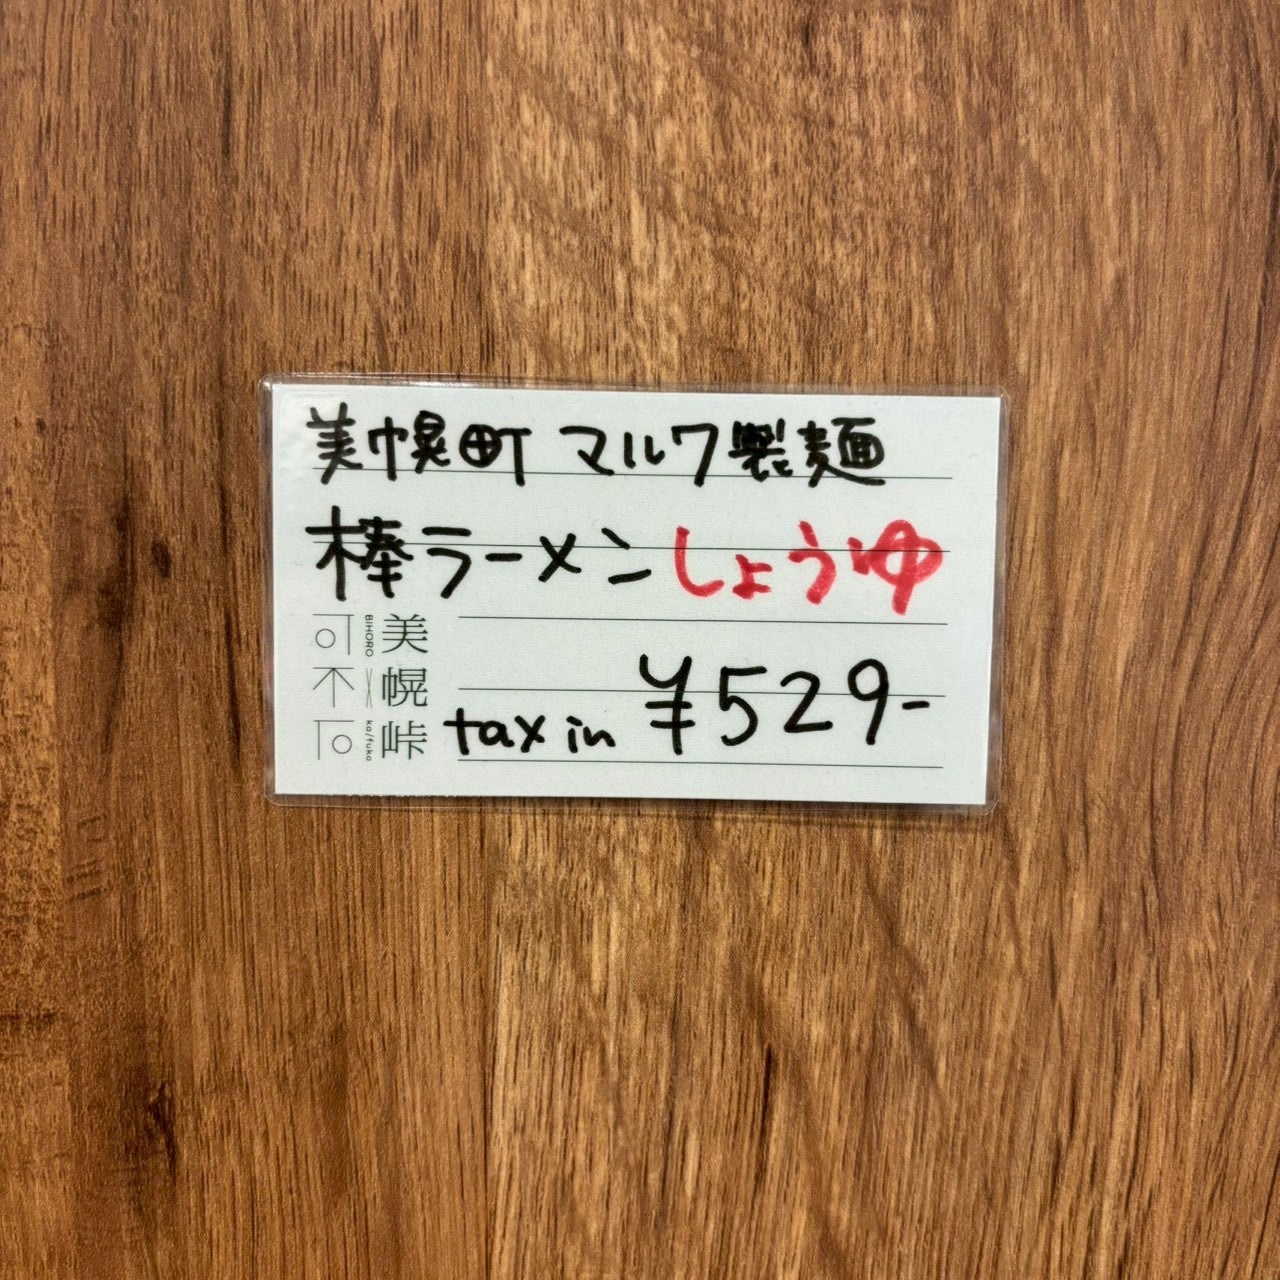 美幌町 マルワ製麺
棒ラーメンしょうゆ
tax in ¥529-
美幌峠
BIHORO
ka/fuka
可不可